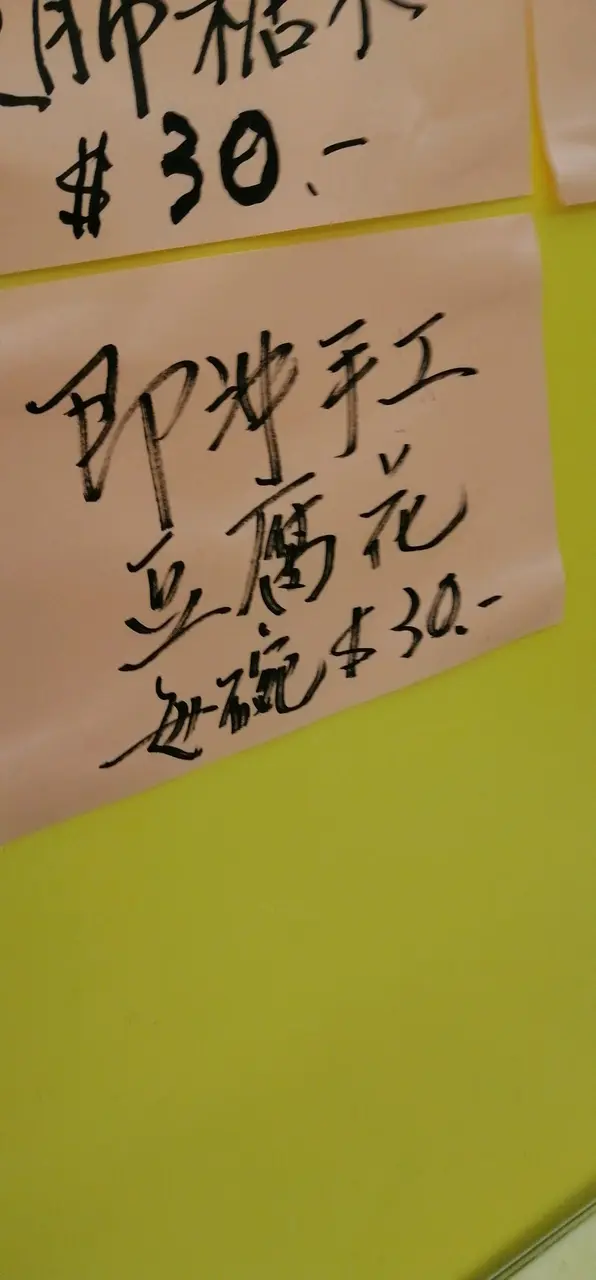 肺糖水
$30.-
即冲手工
豆腐花
每碗$30.-